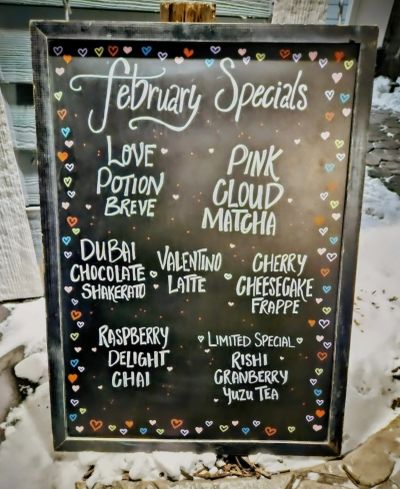 February Specials
LOVE
POTION
BREVE
PINK
CLOUD
MATCHA
DUBAI
CHOCOLATE
SHAKERATO
VALENTINO
LATTE
CHERRY
CHEESECAKE
FRAPPE
RASPBERRY
DELIGHT
CHAI
LIMITED SPECIAL
RISHI
CRANBERRY
YUZU TEA